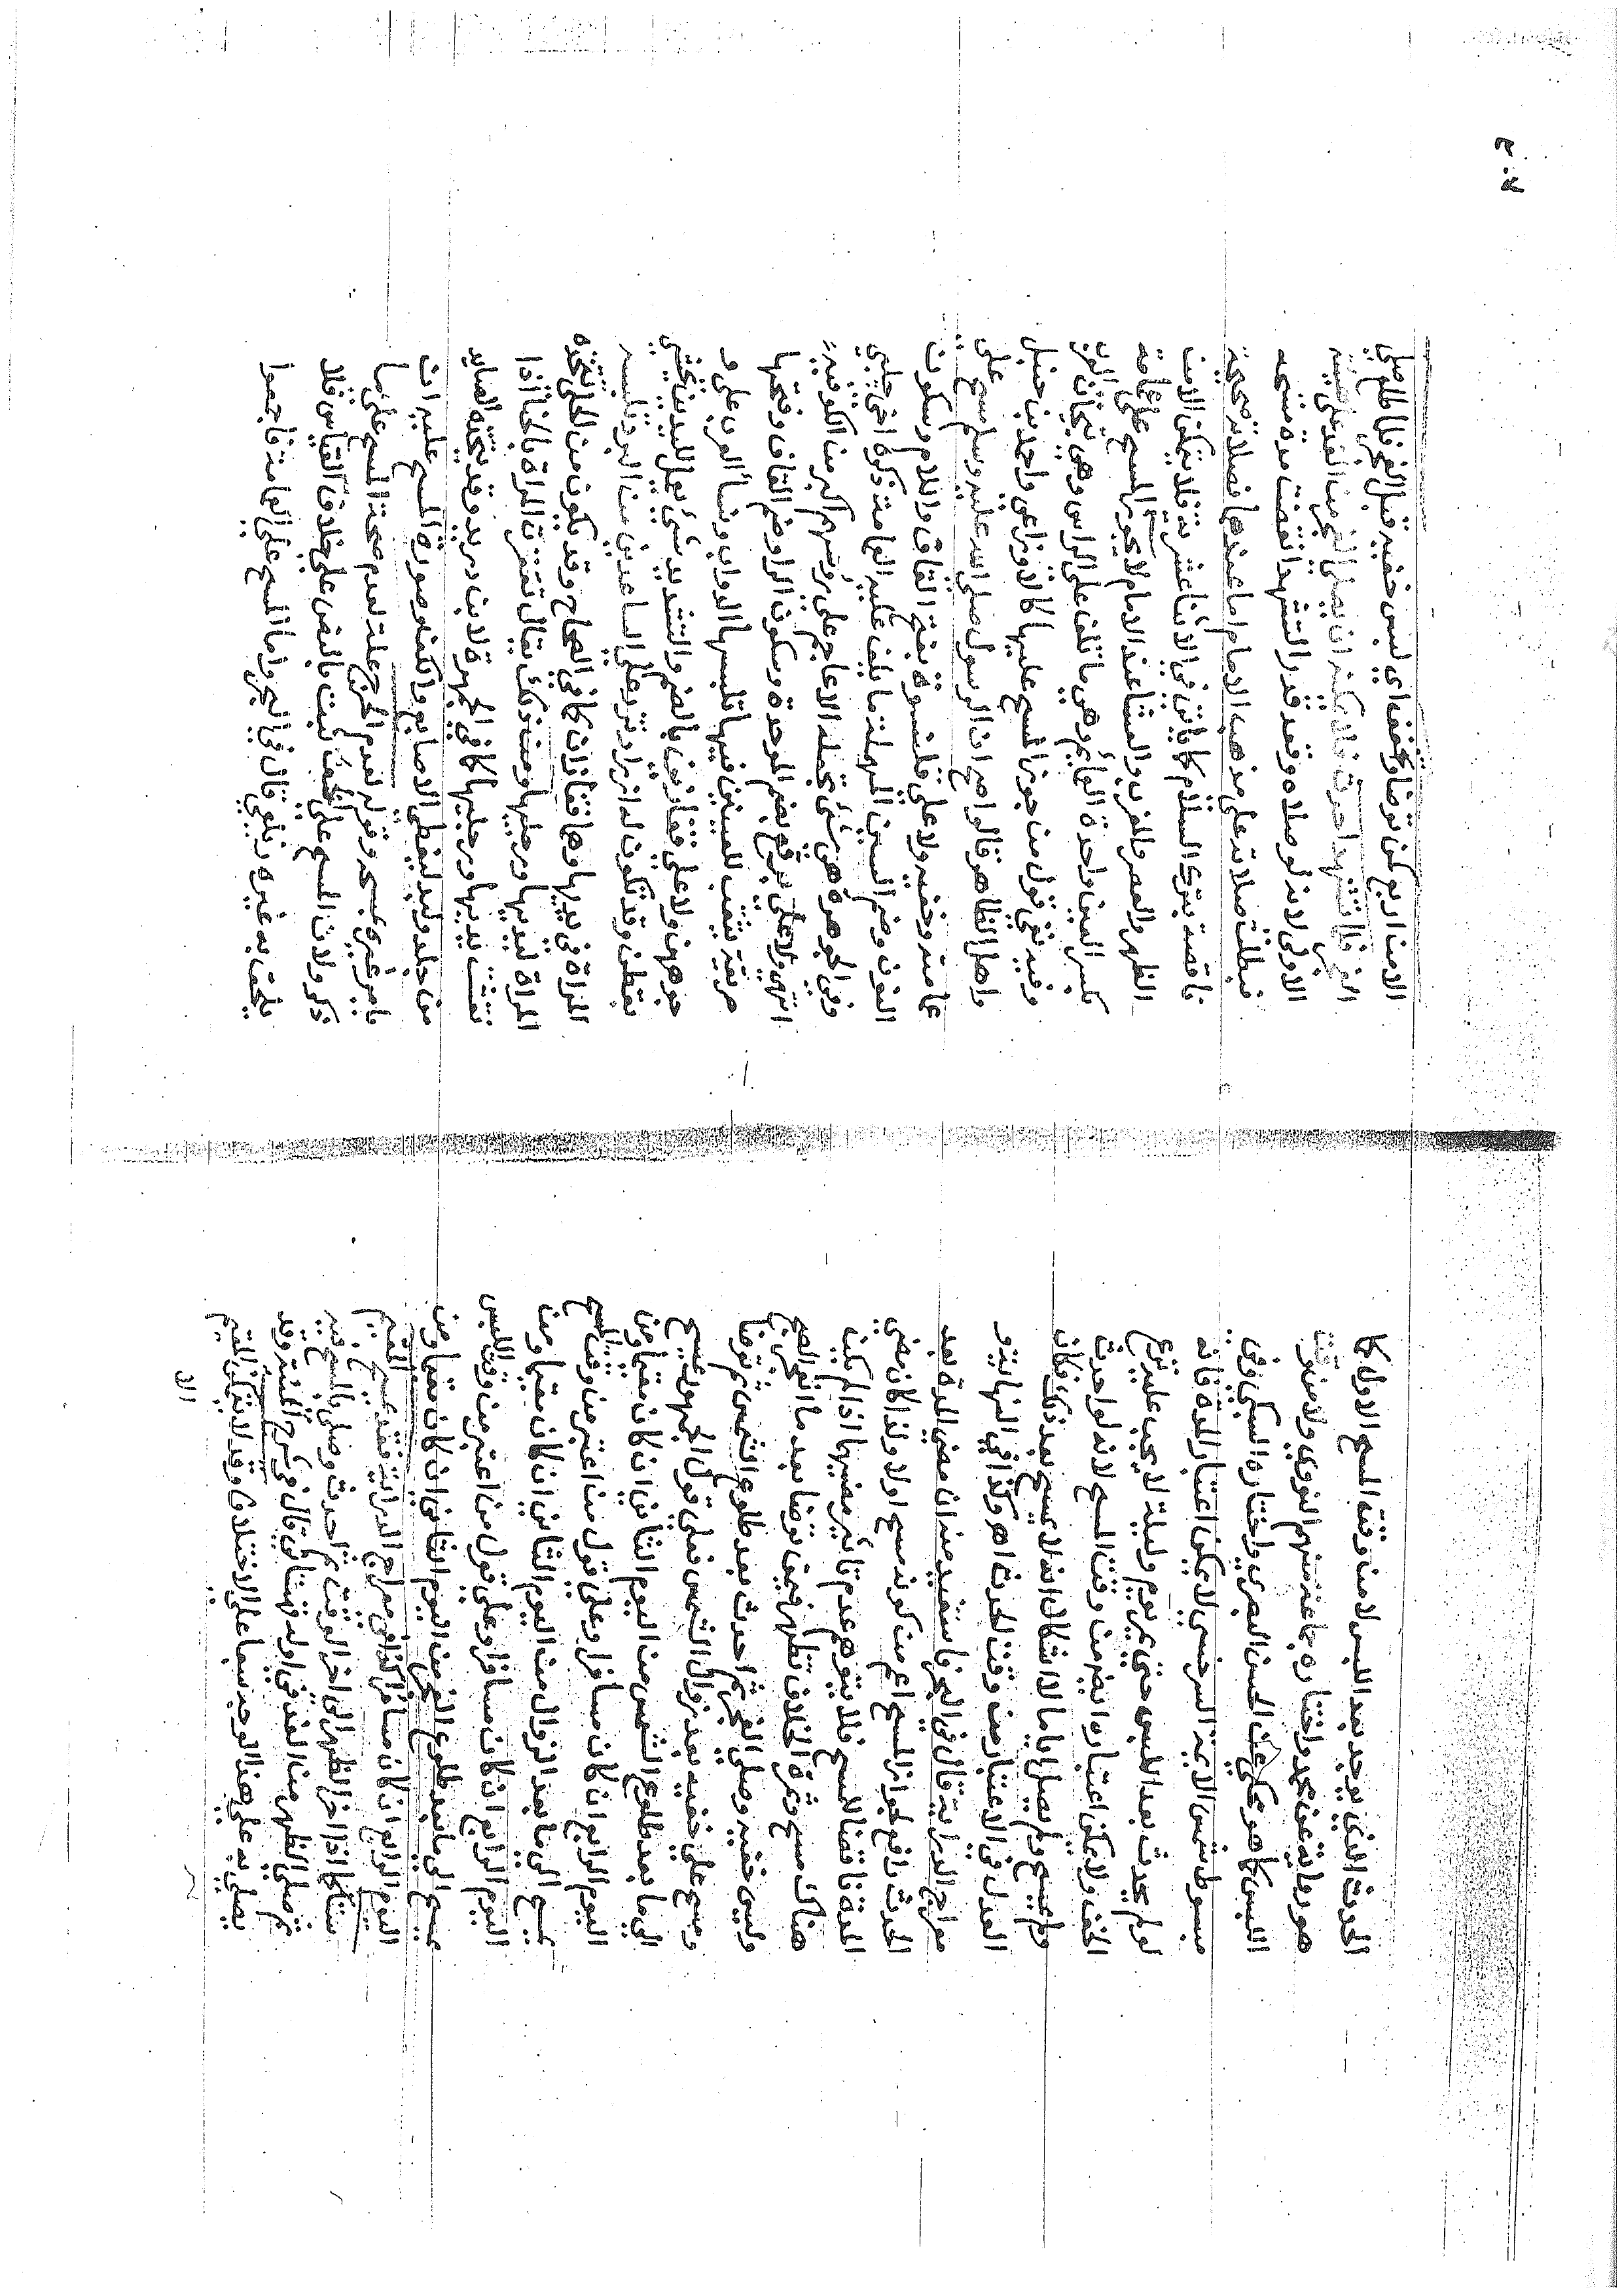 الحدث الذي يوجد بعد اللبس لا من وقت المسح الاول كما
هو رواية عن محمد واختاره جماعة منهم النووي ولا من وقت
اللبس كما هو محكي عن الحسن البصري واختاره السبكي وفي
مبسوط شمس الايمة السرخسي لا يمكن اعتبار المدة فانه
لو لم يحدث بعد اللبس حتى يمر يوم وليلة لا يجب عليه نزع
الخف ولا يمكن اعتباره ايضا من وقت المسح لانه لو احدث
ولم يمسح ولم يصل اياما لا اشكال انه لا يمسح بعد ذلك فكان
العدل في الاعتبار من وقت الحدث اه وكذا في النهاية و
معراج الدراية قال في البحر فاستفيد منه ان مضي المدة بعد
الحدث رافع لجواز المسح اعم من كونه مسح اولا ولذا كان مضي
المدة ناقضا للمسح فلا يتوهم عدم تأثير مضيها اذا لم يكن
هناك مسح وثمرة الخلاف تظهر فيمن توضا بعد ما انفجر الصبح
ولبس خفيه وصلى الفجر ثم احدث بعد طلوع الشمس ثم توضا
ومسح على خفيه بعد زوال الشمس فعلى قول الجمهور يمسح
الى ما بعد طلوع الشمس من اليوم الثاني ان كان مقيما ومن
اليوم الرابع ان كان مسافرا وعلى قول من اعتبر من وقت المسح
يمسح الى ما بعد الزوال من اليوم الثاني ان كان مقيما ومن
اليوم الرابع ان كان مسافرا وعلى قول من اعتبر من وقت اللبس
يمسح الى ما بعد طلوع الفجر من اليوم الثاني ان كان مقيما ومن
اليوم الرابع ان كان مسافرا كذا في معراج الدراية فقد يمسح المقيم
ستا كما اذا اخر الظهر الى اخر الوقت ثم احدث وصلى بالمسح فيه
ثم صلى الظهر من الغد في اوله قال في شرح المنية وقد
يصلي به على هذا الوجه سبعا على الاختلاف وقد لا يتمكن المقيم
الا
الا من اربع كمن توضأ وتخفف اي لبس خفيه قبل الفجر فلما طلع صلى
الفجر فلما تشهد احدث فلا يمكنه ان يصلي الفجر من الغد على هيئة
الاولى لانه لو صلاه وقعد قدر التشهد انقضت مدة مسحه
فبطلت صلاته على مذهب الامام اما عندهما فصلاته صحيحة
ناقصة بترك السلام كما ياتي في الاثنا عشرية فلا يتمكن الا من
الظهر والعصر والمغرب والعشا عند الامام لا يجوز المسح على عمامة
بكسر العين واحدة العمائم وهي ما تلف على الراس وهي تيجان العرب
وفيه نفي قول من جوز المسح عليها كالاوزاعي واحمد بن حنبل
واهل الظاهر قالوا صح ان الرسول صلى الله عليه وسلم مسح على
عمامته وخفيه ولا على قلنسوة بفتح القاف واللام وسكون
النون وضم السين المهملة ما يلف عليه العمامة ذكره اخي جلبي
وفي الجوهرة هي شئ تجعله الاعاجم على رؤسهم اكبر من الكوفية
انتهى ولا على برقع بضم الموحدة وسكون الرا وضم القاف وفتحها
خرقة تثقب للعينين فيها تلبسها الدواب ونسأ العرب على و
جوههن ولا على قفازين بالضم والتشديد شئ يعمل لليدين يحشى
بقطن وقد تكون له ازرار تزر على الساعدين من البرد تلبسه
المراة في يديها وهما قفازان كما في الصحاح وقد يكون من الحلي تتخذه
المراة ليديها ورجليها ومن ذلك يقال تقفزت المراة بالحنا اذا
نقشت يديها ورجليها كما في الجمهرة لابن دريد وقد يتخذه الصايد
من جلد ولبد ليغطي الاصابع والكف وصورة المسح عليه ان
يامر غيره بمسحه وقوله لعدم الحرج علة لعدم صحة المسح على ما
ذكر ولان المسح على الخف ثبت بالنص على خلاف القياس فلا
يلحق به غيره زيلعي قال في البحر واما المسح على العمامة فاجمعوا